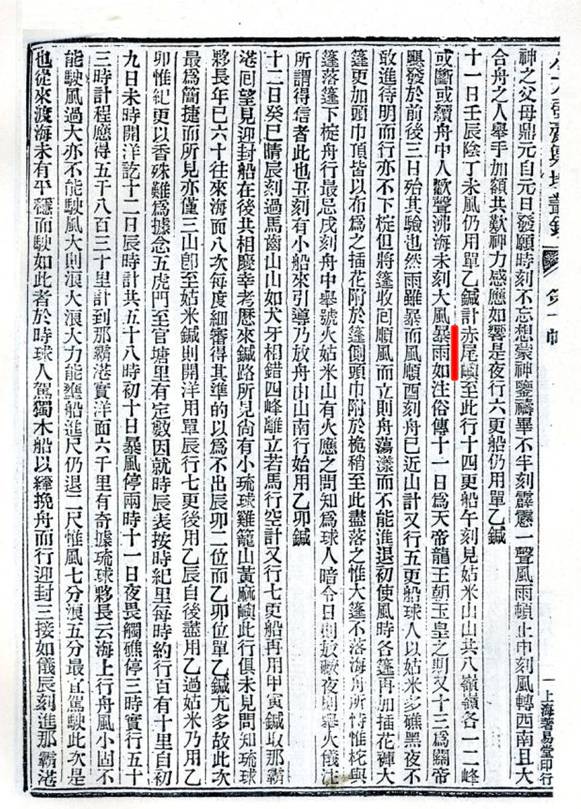 小方壺齋輿地叢鈔 第十帙
上海著易堂印行
神之父母鼎元自元日發願時刻不忘想蒙神鑒禱畢不半刻霹靂一聲風雨頓止申刻風轉西南且大
合舟之人舉手加額共歎神力感應如響是夜行六更船仍用單乙鍼
十一日壬辰陰丁未風仍用單乙鍼計赤尾嶼至此行十四更船午刻見姑米山山共八嶺嶺各一二峰
或斷或續舟中人歡聲沸海未刻大風暴雨如注俗傳十一日爲天帝龍王朝玉皇之期又十三爲關帝
颶發於前後三日殆其驗也然雨雖暴而風順酉刻舟已近山計又行五更船球人以姑米多礁黑夜不
敢進待明而行亦不下椗但將篷收回順風而立則舟蕩漾而不能進退初使風時各篷再加插花褲大
篷更加頭巾頂皆以布爲之插花附於篷側頭巾附於桅梢至此盡落之惟大篷不落海舟所恃惟柁與
篷落篷下椗舟行最忌戌刻舟中舉號火姑米山有火應之問知爲球人暗令日則放礮夜刻舉火儀注
所謂得信者此也丑刻有小船來引導乃放舟由山南行始用乙卯鍼
十二日癸巳晴辰刻過馬齒山山如犬牙相錯四峰離立若馬行空計又行七更船再用甲寅鍼取那霸
港回望見迎封船在後共相慶幸老歷來鍼路所見尚有小琉球雞籠山黃麻嶼此行俱未見問知琉球
夥長年已六十往來海面八次每度細審得其準的以爲不出辰卯二位而乙卯位單乙鍼尤多故此次
最爲簡捷而所見亦僅三山卽至姑米鍼則開洋用單辰行七更後用乙辰自後盡用乙過姑米乃用乙
卯惟紀更以香殊難爲據念五虎門至官塘里有定數因就時辰表按時紀里每時約行百有十里自初
九日未時開洋訖十二日辰時計共五十八時初十日暴風停兩時十一日夜畏觸礁停三時實行五十
三時計程應得五千八百三十里計到那霸港實洋面六千里有奇據琉球夥長云海上行舟風小固不
能駛風過大亦不能駛風大則浪大浪大力能壅船進尺仍退二尺惟風七分浪五分最宜駕駛此次是
也從來渡海未有平穩而駛如此者於時球人駕獨木船以縴挽舟而行迎封三接如儀辰刻進那霸港